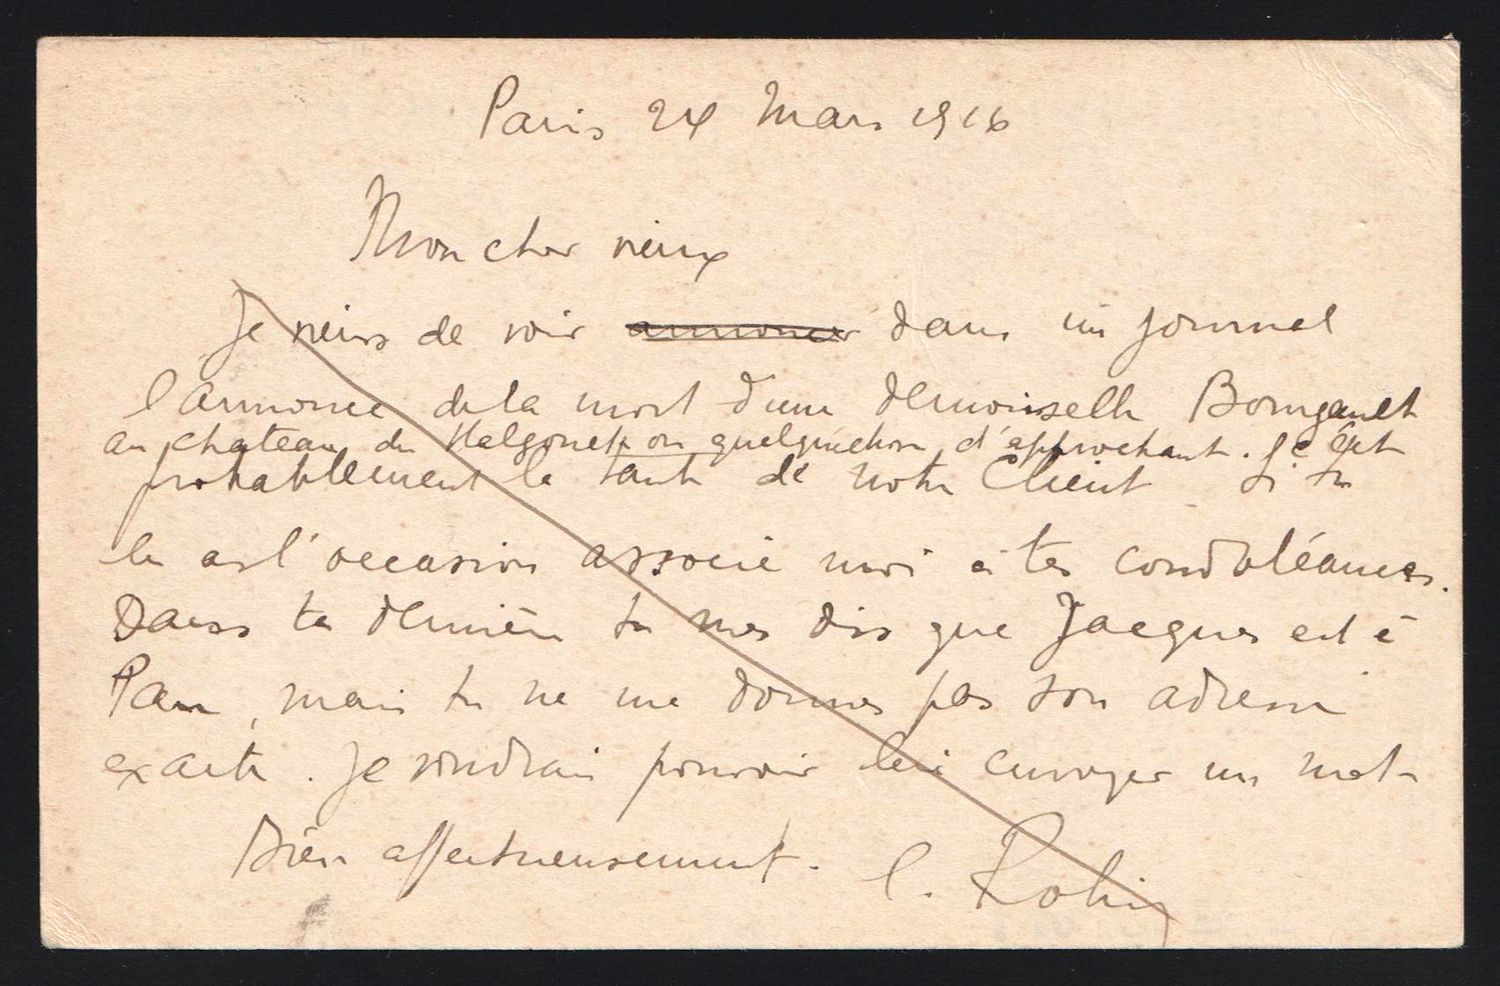 Paris 24 Mars 1916
Mon cher vieux
Je viens de voir annoncer dans un journal
l'annonce de la mort d'une demoiselle Bourgault
au chateau du ou quelquechose d'approchant. C'est
probablement la tante de notre Client. Si tu
en as l'occasion associe moi à tes condoléances.
Dans ta dernière tu me dis que Jacques est à
Pau, mais tu ne me donnes pas son adresse
exacte. Je voudrais pouvoir lui envoyer un mot
Bien affectueusement. C. Robin